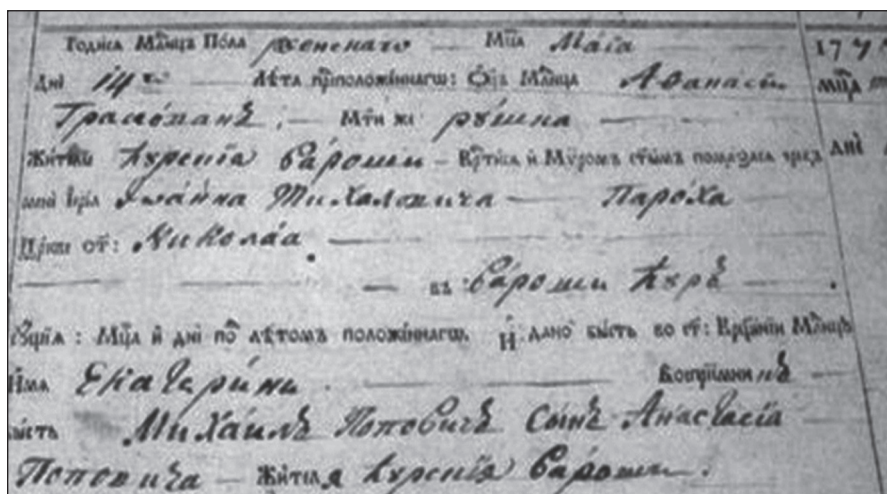 Родиса Мл҃нцъ Пóла женскагѡ Мц҃а Маіа 177
дні 14 го Лѣта приположеннагѡ: Ѻц҃ъ Мл҃нца Аѳанасъ Мц҃а
Гра Мт҃и же рꙋ́шна
жители Кꙋренїѧ Ва́роши Крⷭ҇тиса и Мѵ́ромъ ст҃ымъ помазаса чрез Дні
мені Іереа Іѡа́нна Михаловича Паро́ха
Цр҃кви ст҃: Николаа.
въ Ва́роши Кꙋрѣ
: Мц҃а и дні по лѣтомъ положеннагѡ. И дано бысть во ст҃: Крщ҃еніи Мл҃нцꙋ
Имѧ Екатерины Воспрїемникъ
бысть Миха́илъ Поповичъ Сынъ Анастасіа
Поповича Жителѧ Кꙋренїѧ Ва́роши.